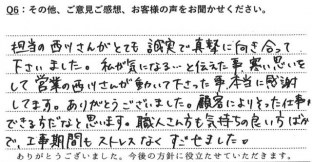 Q6：その他、ご意見ご感想、お客様の声をお聞かせください。
担当の西川さんがとても誠実で真摯に向き合って
下さいました。私が気になる…と伝えた事寒い思いを
して営業の西川さんが動いて下さった事本当に感謝
してます。ありがとうございました。顧客によりそった仕事が
できる方だなと思います。職人さん方も気持の良い方ばか
で、工事期間もストレスなくすごせました。
ありがとうございました。今後の方針に役立たせていただきます。